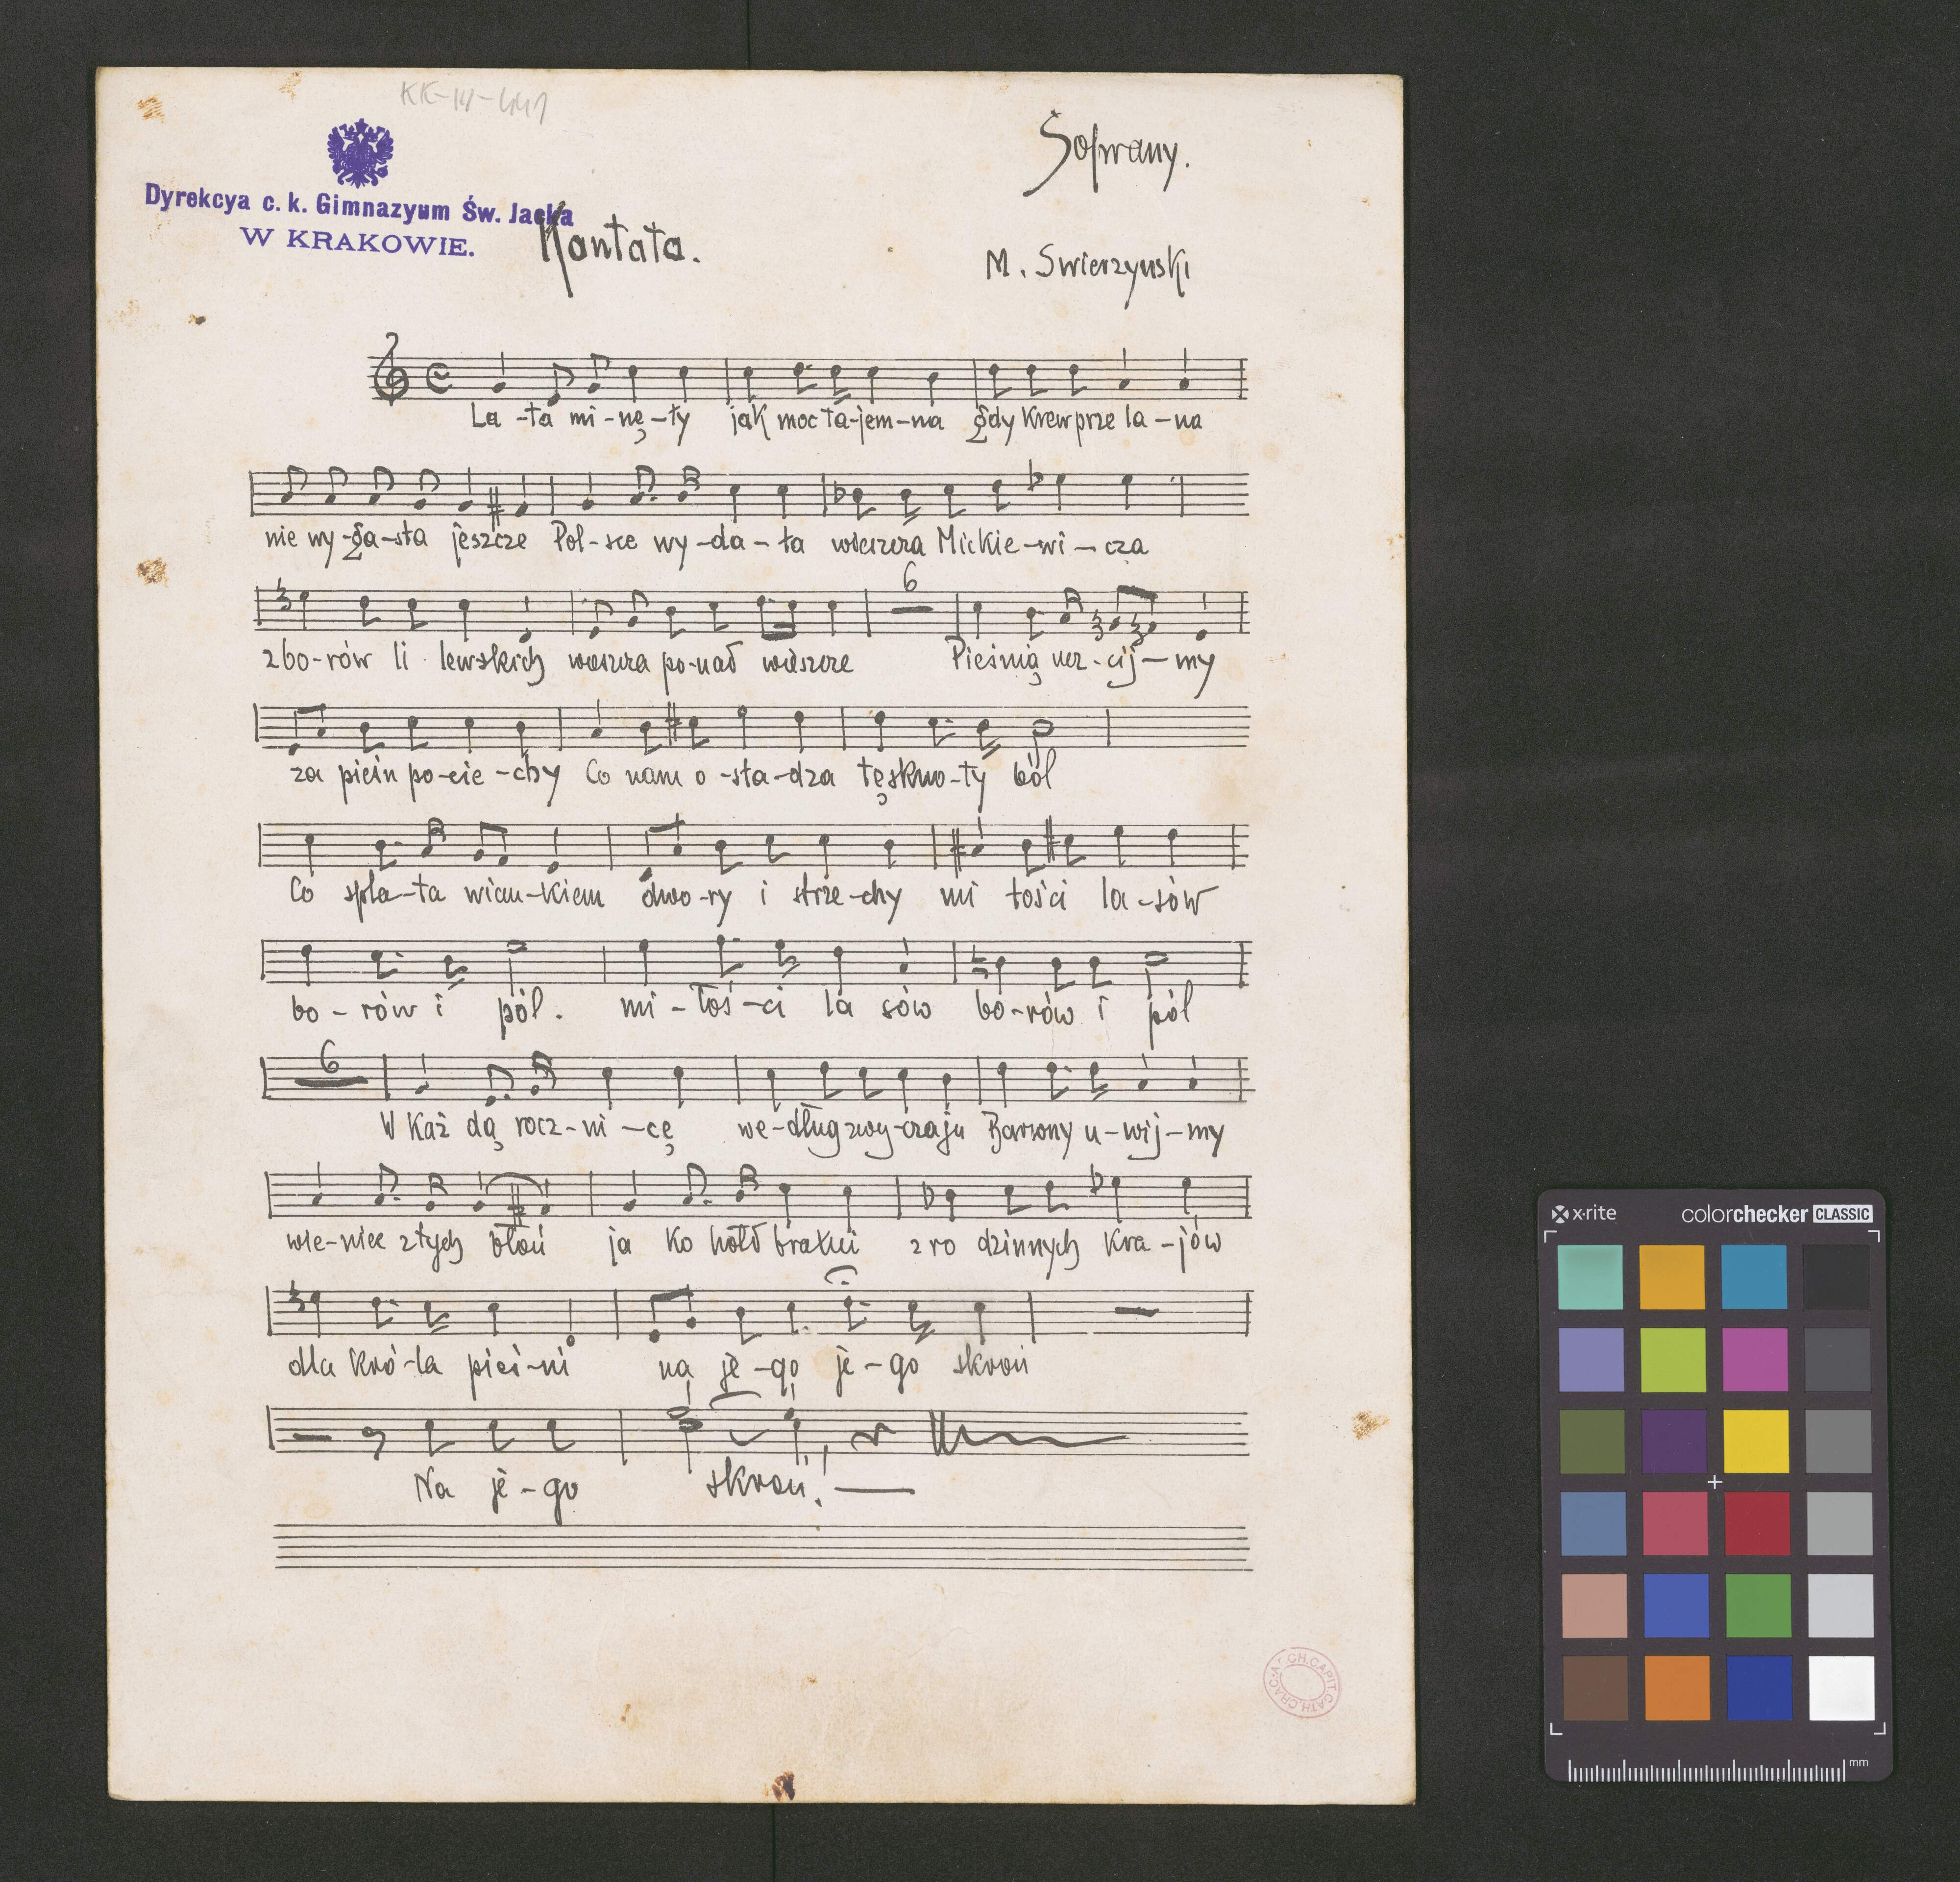 KK-IV-441
Soprany.
Dyrekcya c. k. Gimnazyum Św. Jacka
W KRAKOWIE.
Kantata.
M. Swierzynski
La-ta mi-nę-ły jak moc ta-jem-na gdy krew prze la-na
nie wy-ga-sła jeszcze Pol-sce wy-da-ła wieszcza Mickie-wi-cza
z bo-rów li lewskich wieszcza po-nad wieszcze Pieśnią ucz-cij-my
6
za pieśn po-cie-chy Co nam o-sła-dza tęskno-ty ból
Co spla-ta wian-kiem dwo-ry i strze-chy mi łości la-sów
bo-rów i pól. mi-łoś-ci la sów bo-rów i pól
6
W każ dą rocz-ni-cę we-dług zwy-czaju u-wij-my
wie-niec z tych błoń ja ko hołd bratni z ro dzinnych kra-jów
dla kró-la pieś-ni na je-go je-go skroń
Na je-go skroń!
ARCH. CAPIT. CATH. CRAC.
x-rite colorchecker CLASSIC
mm